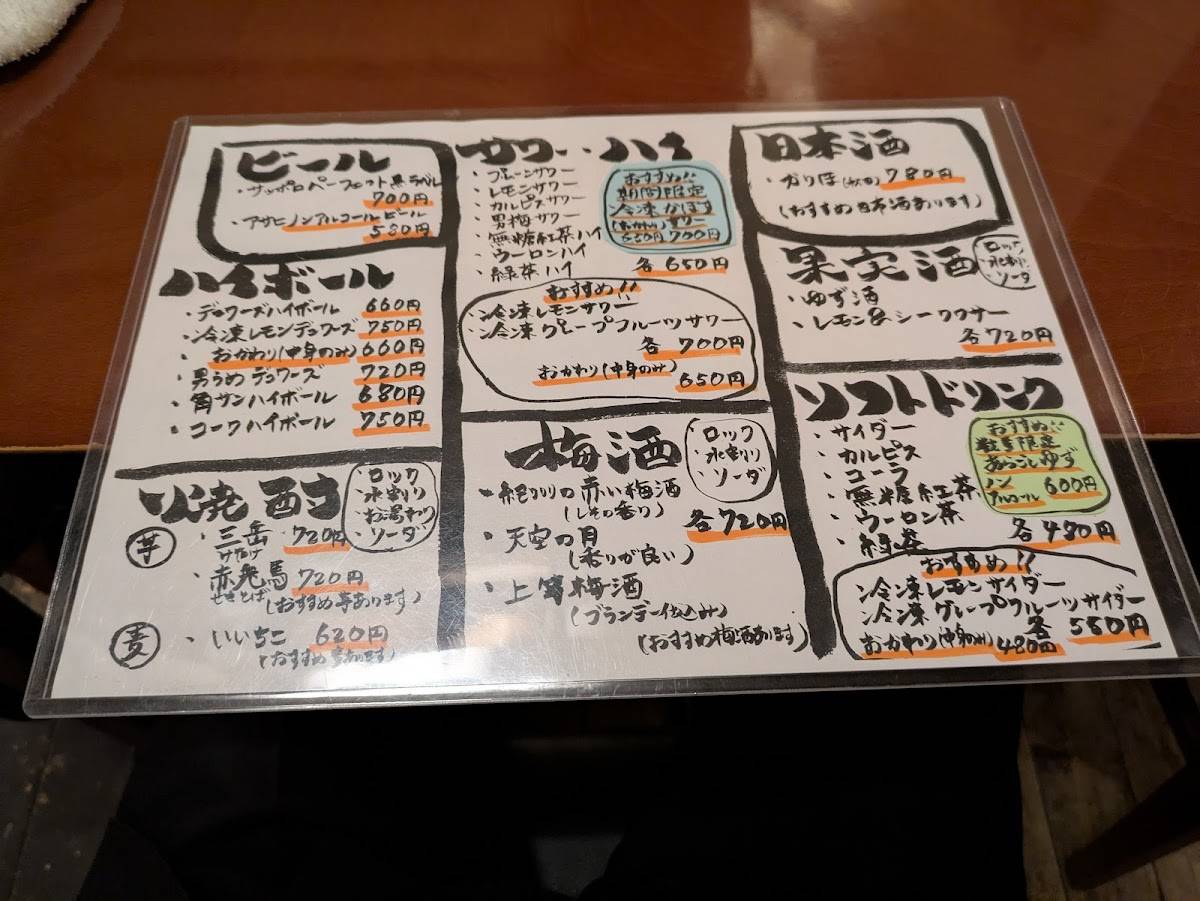 ビール
・サッポロパーフェクト黒ラベル
700円
・アサヒノンアルコールビール
580円
ハイボール
・デュワーズハイボール 660円
・冷凍レモンデュワーズ 750円
・おかわり(中身のみ) 660円
・男うめデュワーズ 720円
・角サンハイボール 680円
・コークハイボール 750円
焼酎
ロック
水割り
お湯わり
ソーダ
芋
・三岳 720円
みたけ
・赤兎馬 720円
せきとば (おすすめ芋あります)
麦
・いいちこ 620円
(おすすめ麦あります)
サワー・ハイ
・プレーンサワー
・レモンサワー
・カルピスサワー
・男梅サワー
・無糖紅茶ハイ
・ウーロンハイ
・緑茶ハイ
各650円
おすすめ!!
期間限定
冷凍かぼす
(おかわり) サワー
700円
おすすめ!!
・冷凍レモンサワー
・冷凍グレープフルーツサワー
各 700円
おかわり(中身のみ)
650円
梅酒
ロック
水割り
ソーダ
の赤い梅酒
(しその香り)
各720円
・天空の月
(香りが良い)
・上等梅酒
(ブランデー仕込み)
(おすすめ梅酒あります)
日本酒
・かりほ(秋田) 780円
(おすすめ日本酒あります)
果実酒
ロック
水割り
ソーダ
・ゆず酒
・レモン&シークワサー
各720円
ソフトドリンク
・サイダー
・カルピス
・コーラ
・無糖紅茶
・ウーロン茶
・緑茶
各480円
おすすめ!!
数量限定
あらごしゆず
ノン
アルコール 600円
おすすめ!!
・冷凍レモンサイダー
・冷凍グレープフルーツサイダー
各 550円
おかわり(中身のみ) 480円